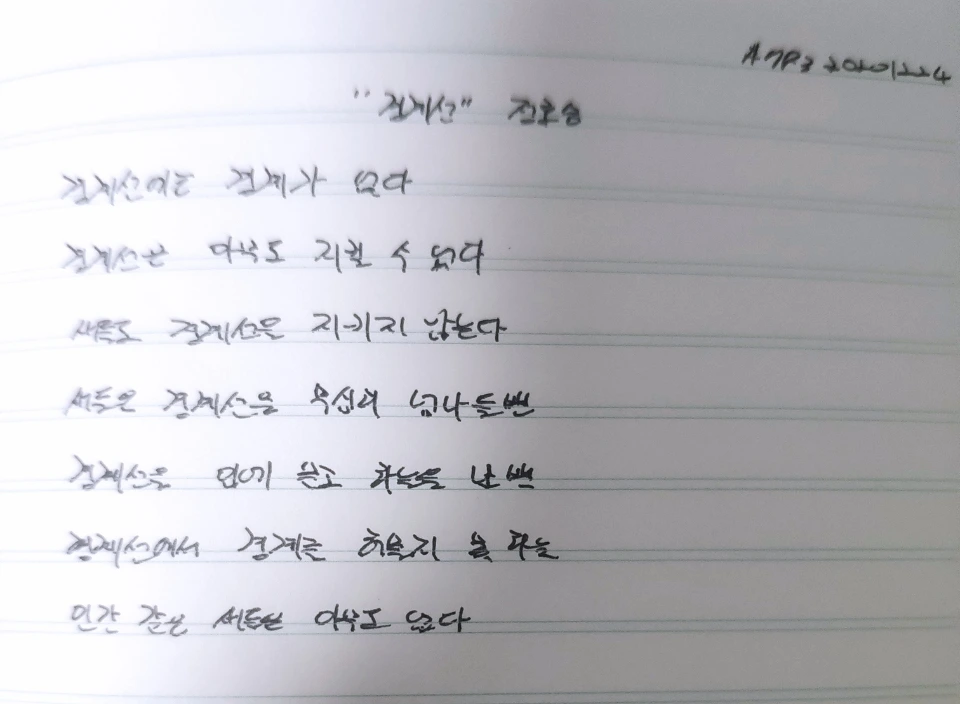 AMP3 20201224
"경계선" 정호승
경계선에는 경계가 없다
경계선은 아무도 지킬 수 없다
새들도 경계선을 지키지 않는다
새들은 경계선을 무심히 넘나들뿐
경계선을 입에 물고 하늘을 날 뿐
경계선에서 경계를 허물지 못하는
인간 같은 새들은 아무도 없다